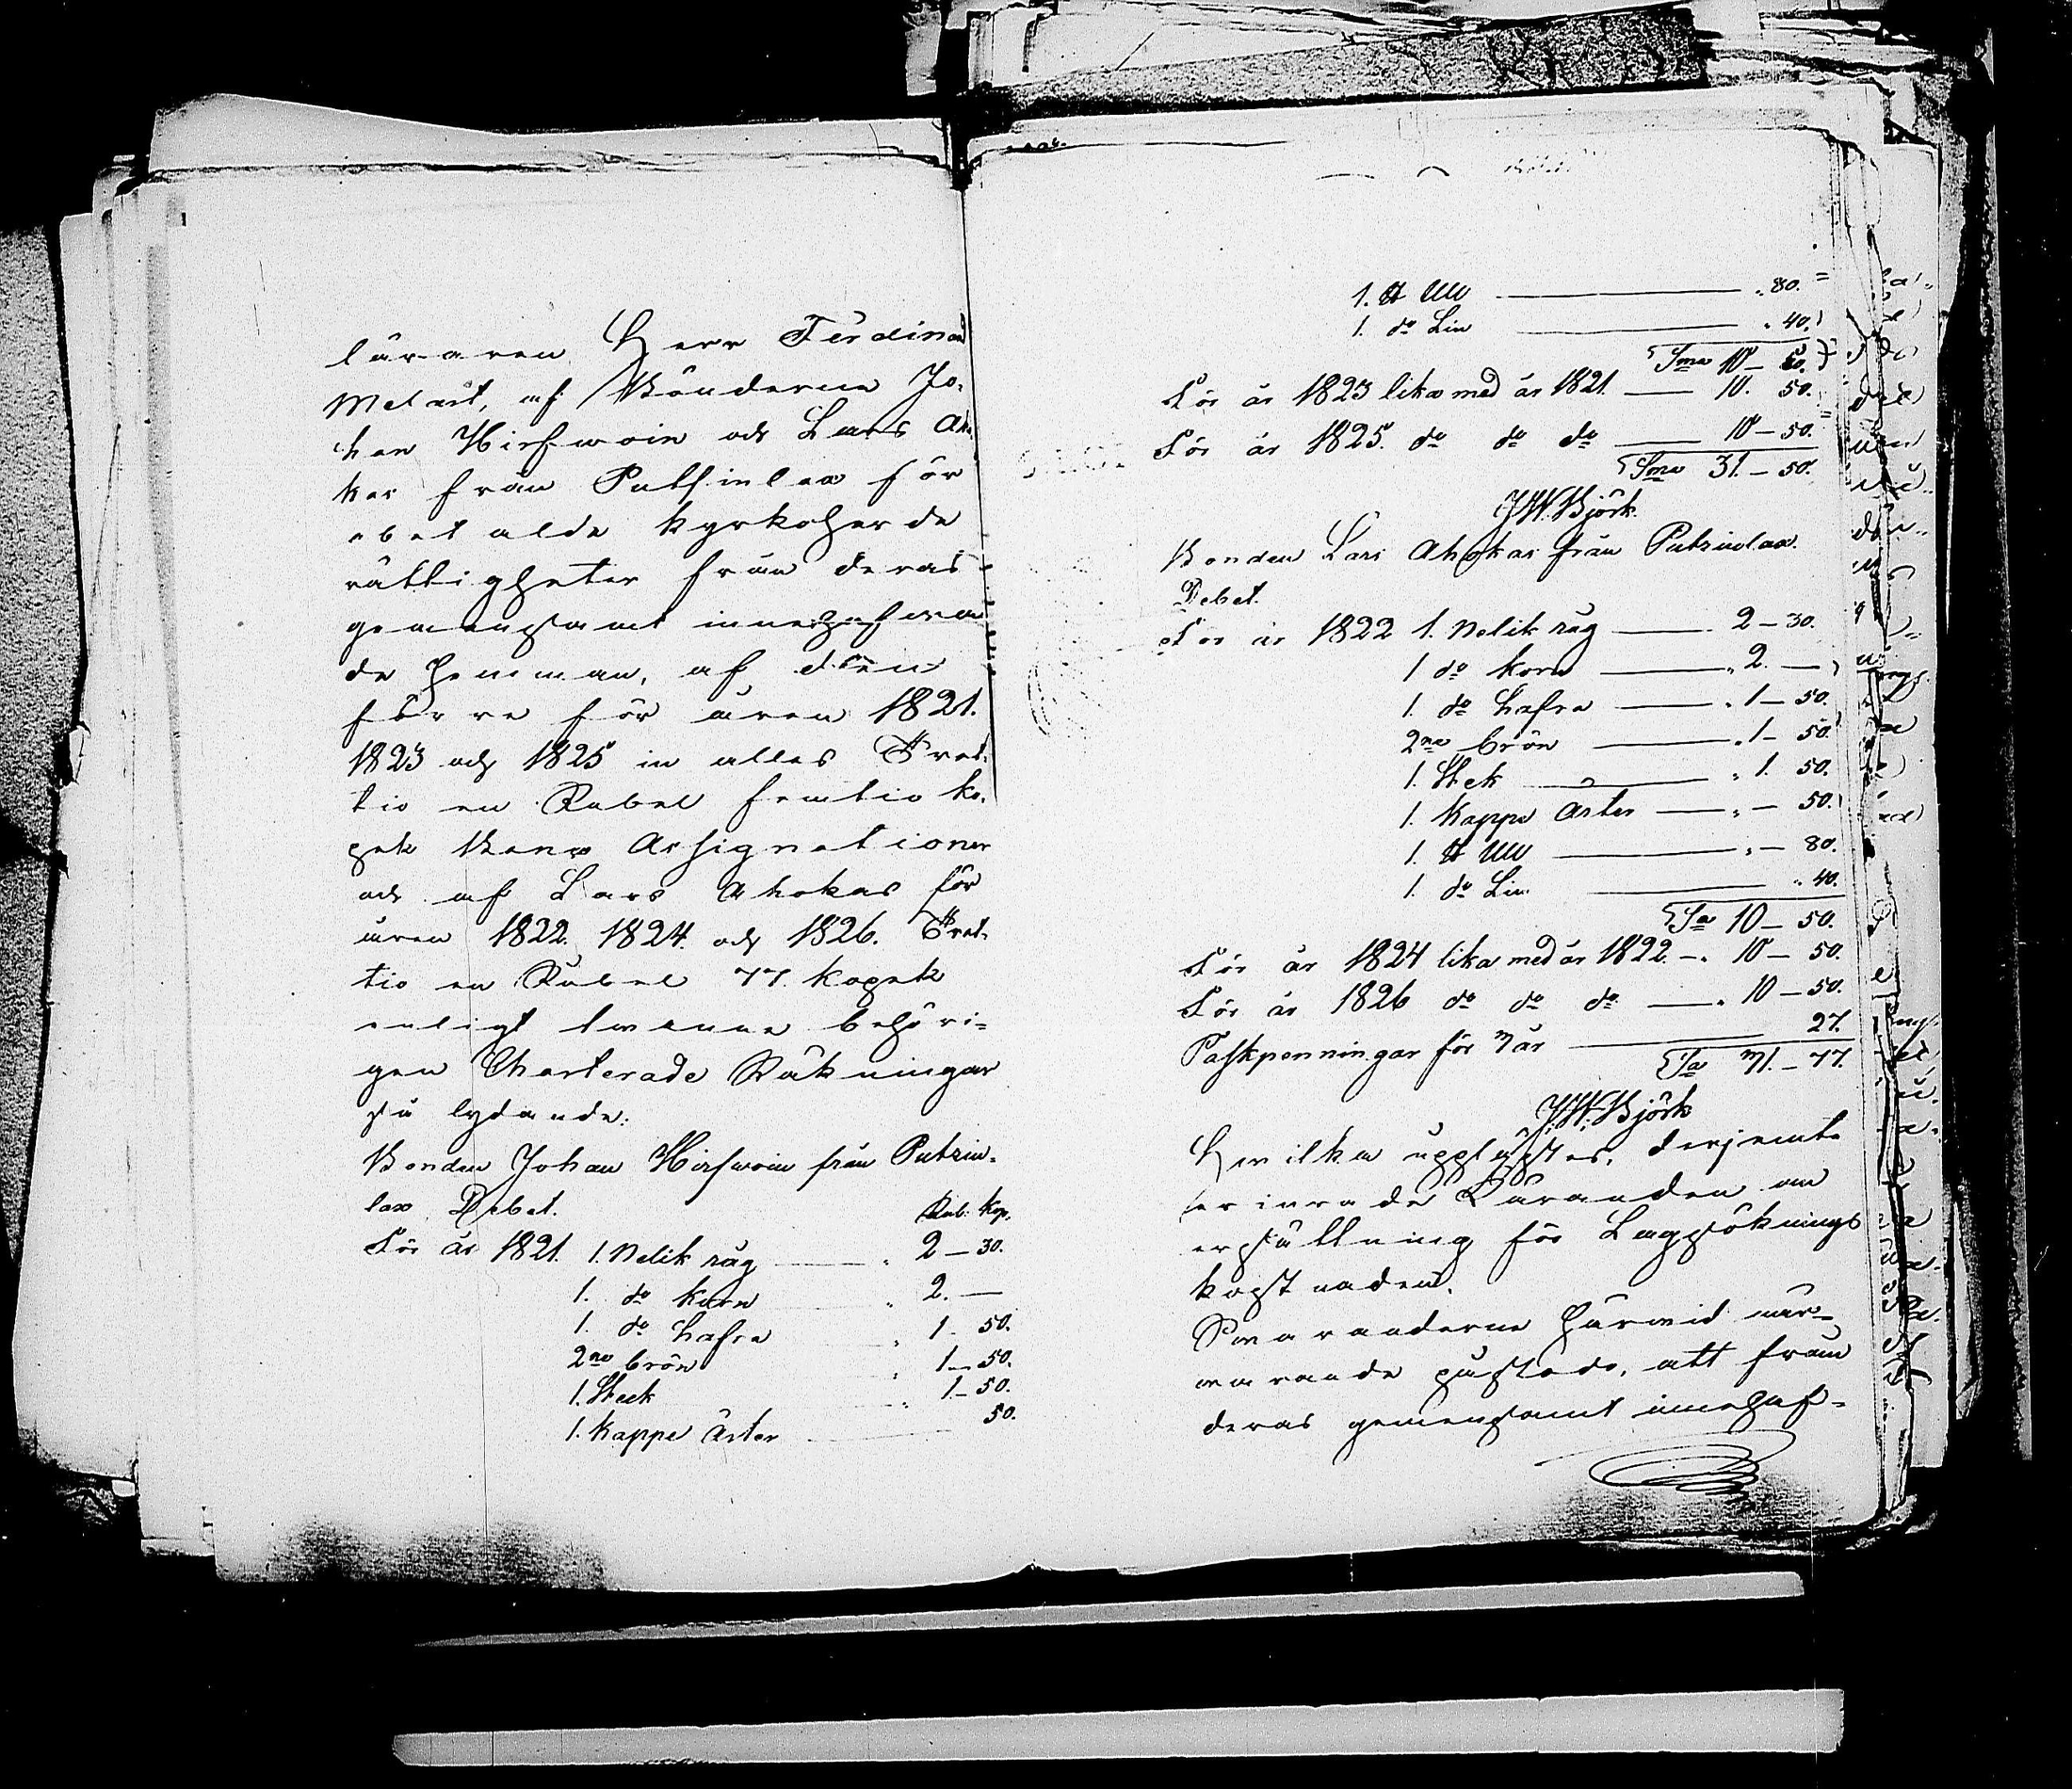 läraren Herr Ferdinand
Melart, af Bönderne Jo-
han Hirfwoin och Lars Aho-
kas från Putsinlax för
obetalde kyrkoherde
rättigheter från deras
gemensamt innehafwa
de hemman, af den
förre för åren 1821.
1823 och 1825 in alles Tret-
tio en Rubel femtio ko-
pek Banco Assignationer
och af Lars Ahokas för
åren 1822. 1824. och 1826. Tret-
tio en Rubel 77. kopek
enligt twenne behöri-
gen Charterade Räkningar
så lydande:
Bonden Johan Hirfwoin från Putzin-
lax Debet. Rub. Kop.
För år 1821. 1. Nelik råg 2 — 30.
1. do korn 2. —
1. do hafra 1 - 50.
2ne brön 1 — 50.
1. Stek 1 - 50.
1. Kappe Ärter 50.
1. ℔ Ull 80.
1. do Lin 40.
Sma 10 — 50.
För år 1823 lika med år 1821. 10. 50.
För år 1825. do do do 10 — 50.
Sma 31. — 50.
J.W. Björk.
Bonden Lars Ahokas från Putzinlax.
Debet.
För år 1822 1. Nelik råg 2 — 30.
1 do korn 2. —
1. do hafra 1 — 50.
2ne brön 1 - 50.
1. Stek 1. 50.
1. Kappe Ärter — 50.
1. ℔ Ull — 80.
1. do Lin 40.
Sa 10 — 50.
För år 1824 lika med år 1822. 10 — 50.
För år 1826 do do do 10 — 50.
Paskpenningar för 3 år 27.
Sa 31. — 77.
J.W. Björk
Hwilka upplästes, derjemte
Käranden om
ersättning för Lagsöknings
kostnaden.
Swaranderne härwid när-
warande påstodo, att från
deras gemensamt innehaf-